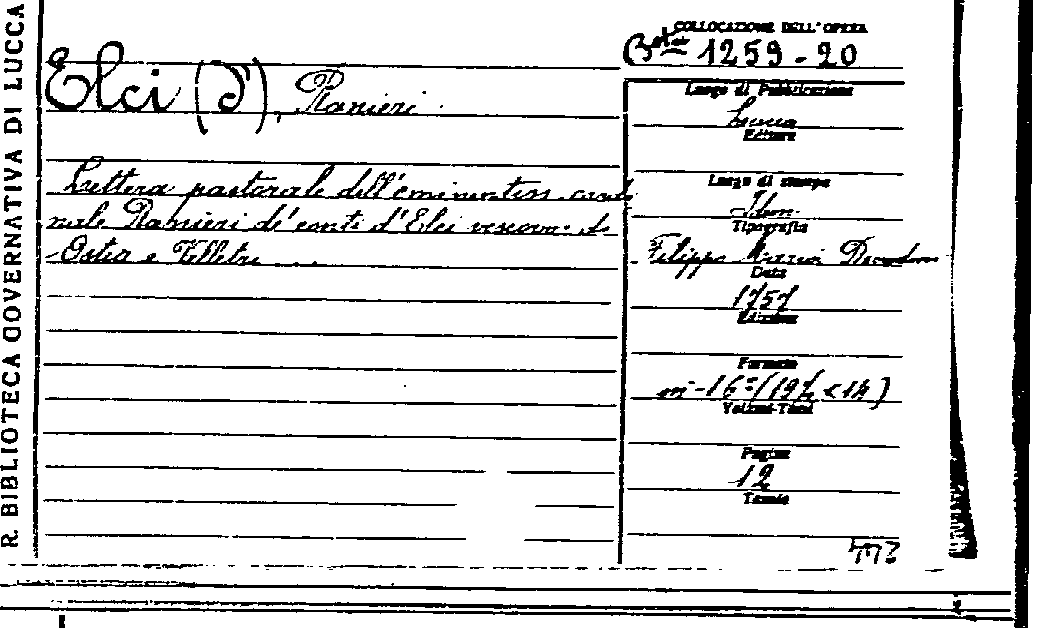 R. BIBLIOTECA GOVERNATIVA DI LUCCA
COLLOCAZIONE DELL'OPERA
1259-20
Elci (d'), Ranieri.
Luogo di Pubblicazione
Lucca
Editore
Lettera pastorale dell'eminentiss. cardi
nale Ranieri de' conti d'Elci vescovo di
Ostia e Velletri
Luogo di stampa
Idem.
Tipografia
Filippo Maria
Data
1757
Edizione
Formato
in-16°(19½ x 14)
Volumi-Tomi
Pagine
12
Tavole